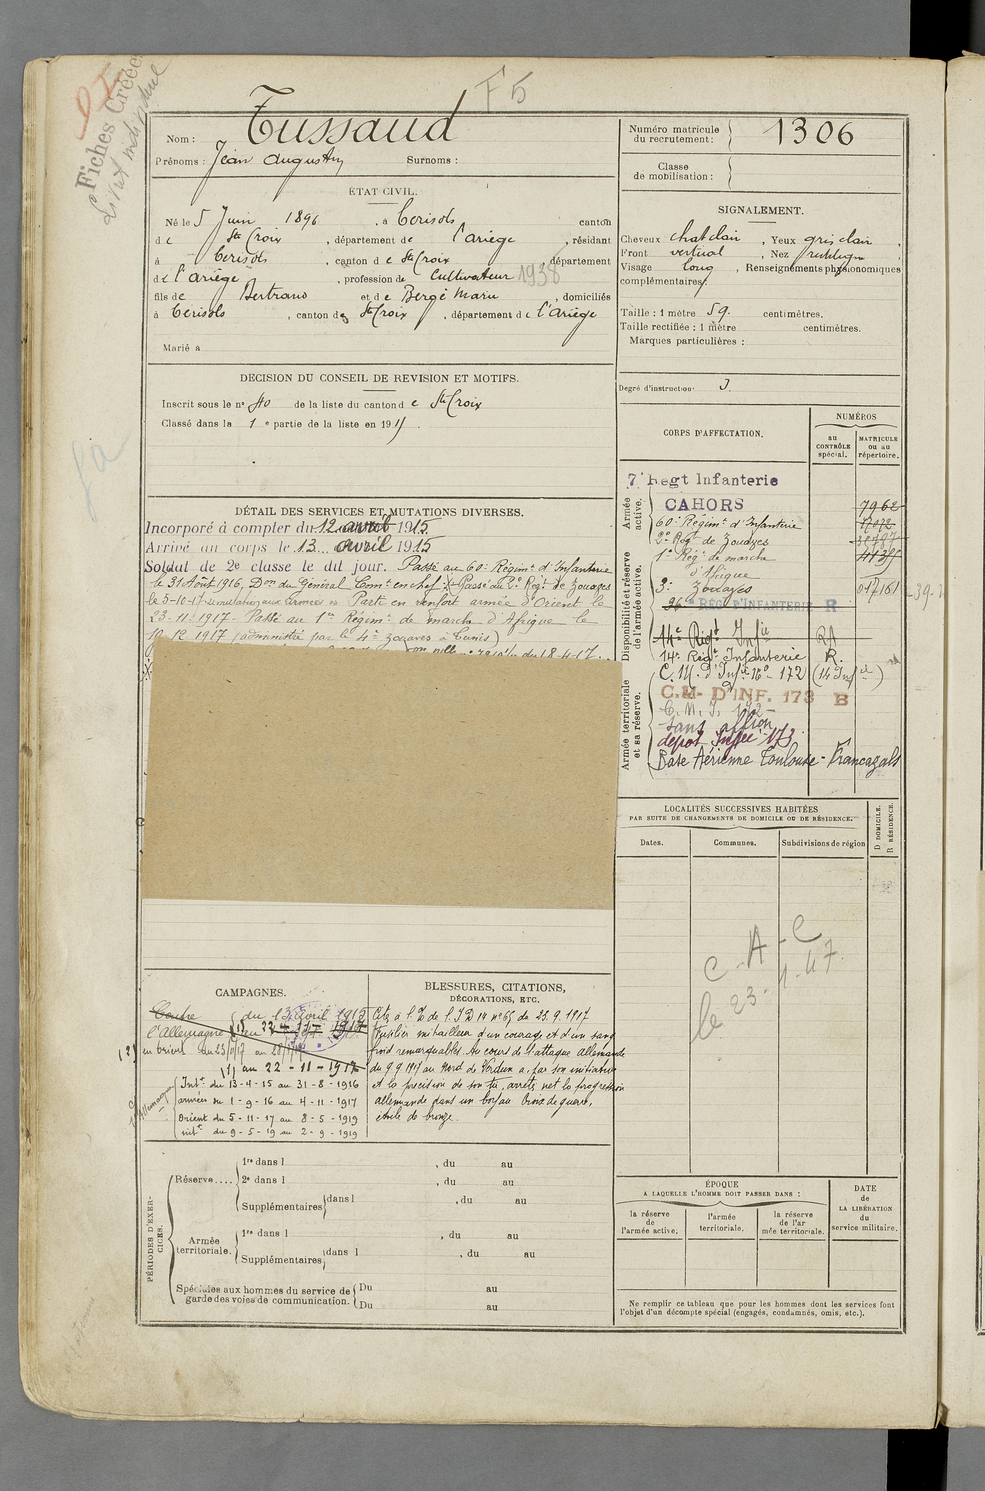 F5
Fiches Créées
Nom : Tussaud
Prénoms : Jean Augustin Surnoms :
Numéro matricule du recrutement : 1306
Classe de mobilisation :
ÉTAT CIVIL.
Né le 5 Juin 1896, à Cerisols canton
de Ste Croix, département de l'Ariège, résidant
à Cerisols, canton de Ste Croix, département
de l'Ariège, profession de Cultivateur 1938
fils de Bertrand et de Bergé Marie, domiciliés
à Cerisols, canton de Ste Croix, département de l'Ariège
Marié à
SIGNALEMENT.
Cheveux chat clair, Yeux gris clair,
Front vertical, Nez rectiligne
Visage long, Renseignements physionomiques
complémentaires :
Taille : 1 mètre 59. centimètres.
Taille rectifiée : 1 mètre centimètres.
Marques particulières :
Degré d'instruction : 3.
DÉCISION DU CONSEIL DE REVISION ET MOTIFS.
Inscrit sous le n° 40 de la liste du canton de Ste Croix
Classé dans la 1e partie de la liste en 1915.
CORPS D'AFFECTATION.
NUMÉROS
au CONTRÔLE spécial.
MATRICULE ou au répertoire.
Armée active.
7e Regt Infanterie
CAHORS 7962
60e Régimt d'Infanterie
2e Régt de Zouaves
1er Régt de marche
d'Afrique
Disponibilité et réserve de l'armée active.
3e Zouaves
36e REG D'INFANTERIE R
14e Regt Infie
14e Regt Infanterie R.
Armée territoriale et sa réserve.
C.M. d'Infie 16e - 172 (14 Infie)
C.M. D'INF. 173 B
C. M. I. 172 -
sans affion
dépôt Infie 173
Base Aérienne Toulouse - Francazals
DÉTAIL DES SERVICES ET MUTATIONS DIVERSES.
Incorporé à compter du 12 avril 1915.
Arrivé au corps le 13 avril 1915
Soldat de 2e classe le dit jour. Passé au 60e Régimt d'Infanterie
le 31 Août 1916, Don du Général Commt en chef. Passé au 2e Régt de Zouaves
le 5-10-17 Parti en renfort armée d'Orient le
23-11-1917. Passé au 1er Régimt de marche d'Afrique le
10-12-1917 (administré par le 4e zouaves à Tunis)
du 18-4-17.
LOCALITÉS SUCCESSIVES HABITÉES
PAR SUITE DE CHANGEMENTS DE DOMICILE OU DE RÉSIDENCE.
Dates.
Communes.
Subdivisions de région
D DOMICILE.
R RÉSIDENCE.
C-A-C
le 23-1-47.
CAMPAGNES.
Contre l'Allemagne du 13 avril 1915
en orient au 23/11/17
(1) au 22-11-1917
Intr du 13-4-15 au 31-8-1916
armées du 1-9-16 au 4-11-1917
Orient du 5-11-17 au 8-5-1919
intr du 9-5-19 au 2-9-1919
BLESSURES, CITATIONS,
DÉCORATIONS, ETC.
Cité à l'O. de l'I.D 14 n° 65 du 25.9.1917
Fusilier mitrailleur d'un courage et d'un sang
froid remarquables. Au cours de l'attaque allemande
du 9.9.1917 au Nord de Verdun a, par son initiative
et la précision de son tir, arrêté net la progression
allemande dans un boyau. Croix de guerre,
étoile de bronze.
PÉRIODES D'EXERCICES.
Réserve....
1re dans l , du au
2e dans l , du au
Supplémentaires dans l , du au
Armée territoriale.
1re dans l , du au
Supplémentaires dans l , du au
Spéciales aux hommes du service de garde des voies de communication.
Du au
Du au
ÉPOQUE
A LAQUELLE L'HOMME DOIT PASSER DANS :
la réserve de l'armée active.
l'armée territoriale.
la réserve de l'armée territoriale.
DATE de LA LIBÉRATION du service militaire.
Ne remplir ce tableau que pour les hommes dont les services font
l'objet d'un décompte spécial (engagés, condamnés, omis, etc.).